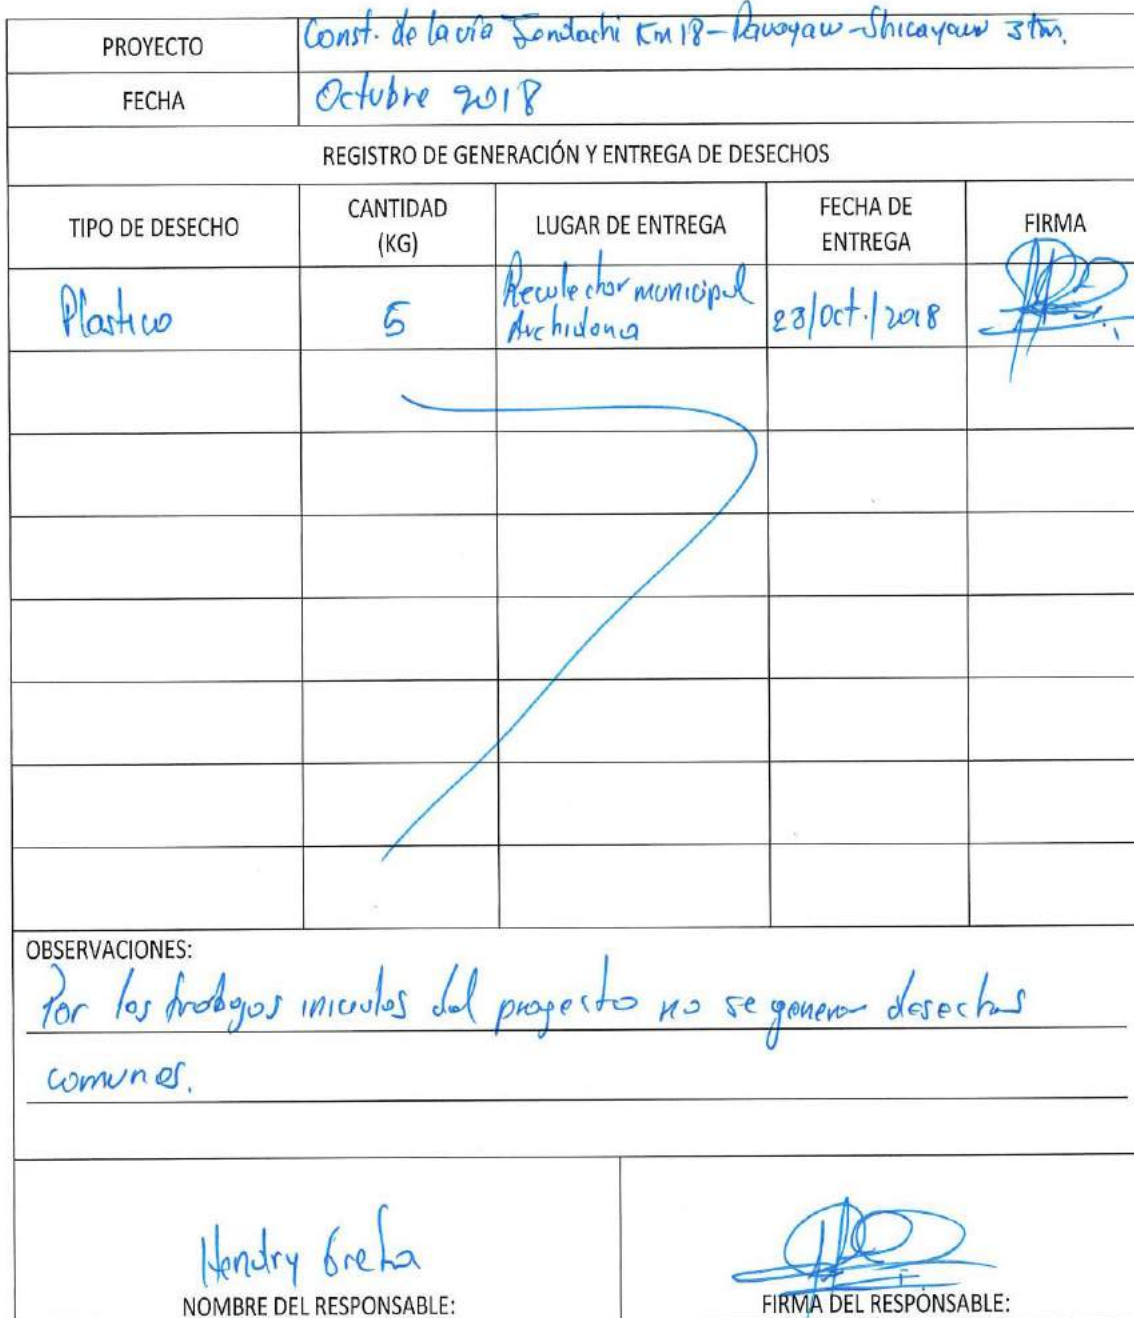 PROYECTO
Const. de la vía Jondachi Km 18 - - Shicayacu 3
FECHA
Octubre 2018
REGISTRO DE GENERACIÓN Y ENTREGA DE DESECHOS
TIPO DE DESECHO
CANTIDAD
(KG)
LUGAR DE ENTREGA
FECHA DE
ENTREGA
FIRMA
Plastico
5
Recolector municipal
Archidona
/Oct./2018
OBSERVACIONES:
Por los trabajos iniciales del proyecto no se generan desechos
comunes.
Hendry
NOMBRE DEL RESPONSABLE:
FIRMA DEL RESPONSABLE: